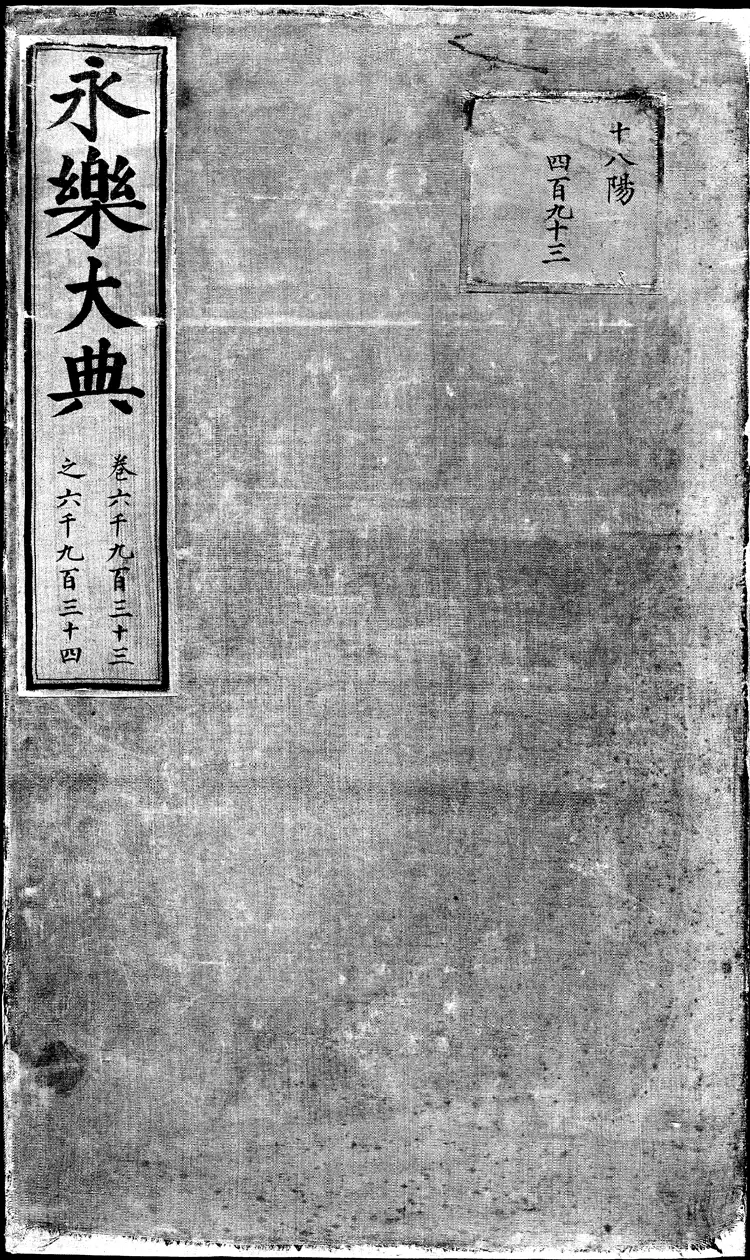 十八陽
四百九十三
永樂大典
卷六千九百三十三
之六千九百三十四